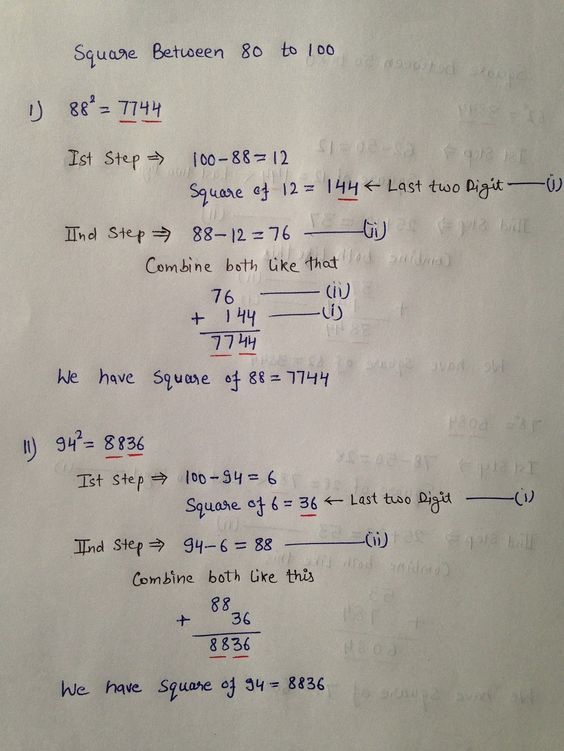 Square Between 80 to 100
I) 88² = 7744
Ist Step ⇒ 100-88=12
Square of 12 = 144 ← Last two Digit —(i)
IInd Step ⇒ 88-12=76 —(ii)
Combine both like that
76 —(ii)
+ 144 —(i)
7744
We have Square of 88=7744
II) 94² = 8836
Ist Step ⇒ 100-94=6
Square of 6=36 ← Last two Digit —(i)
IInd Step ⇒ 94-6=88 —(ii)
Combine both like this
88
+ 36
8836
We have Square of 94=8836